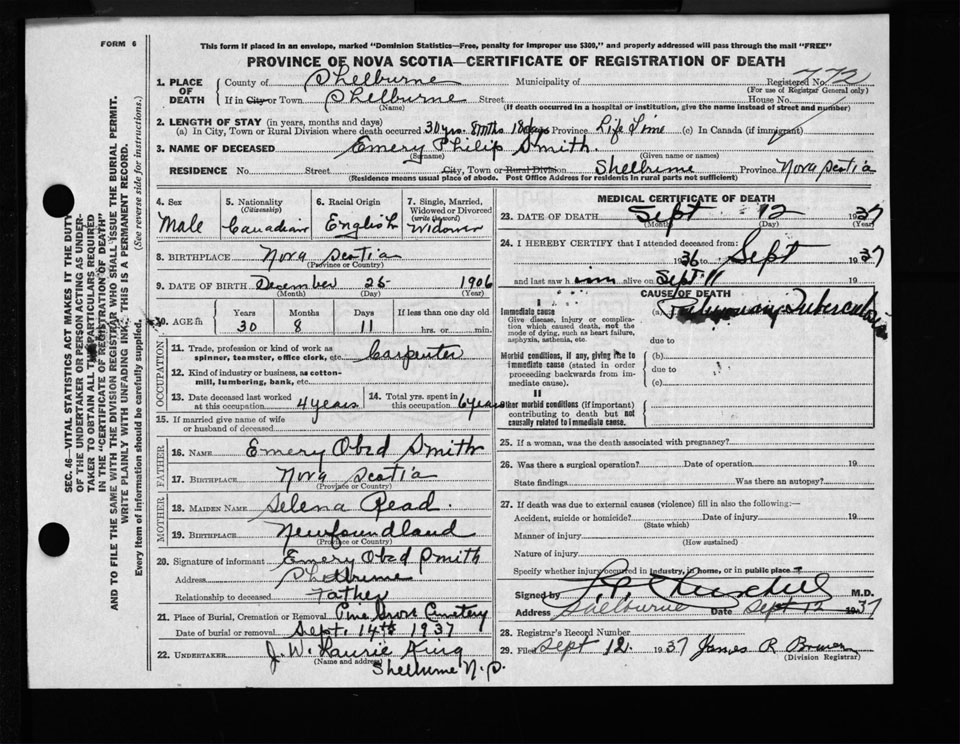 FORM 6
This form if placed in an envelope, marked "Dominion Statistics—Free, penalty for improper use $300," and properly addressed will pass through the mail "FREE"
PROVINCE OF NOVA SCOTIA—CERTIFICATE OF REGISTRATION OF DEATH
1. PLACE OF DEATH County of Shelburne Municipality of Registered No. 772
(For use of Registrar General only)
If in City or Town Shelburne Street House No.
(Name) (If death occurred in a hospital or institution, give the name instead of street and number)
2. LENGTH OF STAY (in years, months and days)
(a) In City, Town or Rural Division where death occurred 30 yrs. 8 mths 18 days Province Life Time (c) In Canada (if immigrant)
3. NAME OF DECEASED Emery Philip Smith.
(Surname) (Given name or names)
RESIDENCE No. Street City, Town or Rural Division Shelburne Province Nova Scotia
(Residence means usual place of abode. Post Office Address for residents in rural parts not sufficient)
4. Sex Male
5. Nationality (Citizenship) Canadian
6. Racial Origin English
7. Single, Married, Widowed or Divorced (write the word) Widower
8. BIRTHPLACE Nova Scotia
(Province or Country)
9. DATE OF BIRTH December 25 1906
(Month) (Day) (Year)
10. AGE in Years Months Days If less than one day old
30 8 11 hrs. or min.
OCCUPATION
11. Trade, profession or kind of work as spinner, teamster, office clerk, etc. Carpenter
12. Kind of industry or business, as cotton-mill, lumbering, bank, etc.
13. Date deceased last worked at this occupation 4 years
14. Total yrs. spent in this occupation 6 years
15. If married give name of wife or husband of deceased
FATHER
16. NAME Emery Obed Smith
17. BIRTHPLACE Nova Scotia
(Province or Country)
MOTHER
18. MAIDEN NAME Selena Read.
19. BIRTHPLACE Newfoundland
(Province or Country)
20. Signature of informant Emery Obed Smith
Address Shelburne
Relationship to deceased Father
21. Place of Burial, Cremation or Removal Pine Grove Cemetery
Date of burial or removal Sept. 14th 1937
22. UNDERTAKER J. W. Laurie King
(Name and address) Shelburne N.S.
MEDICAL CERTIFICATE OF DEATH
23. DATE OF DEATH Sept 12 1937
(Month) (Day) (Year)
24. I HEREBY CERTIFY that I attended deceased from:
1936 to Sept 1937
and last saw him alive on Sept 11
CAUSE OF DEATH
I
Immediate cause (a) Pulmonary Tuberculosis
Give disease, injury or complication which caused death, not the mode of dying, such as heart failure, asphyxia, asthenia, etc.
due to
Morbid conditions, if any, giving rise to immediate cause (stated in order proceeding backwards from immediate cause).
(b)
due to
(c)
II
Other morbid conditions (if important) contributing to death but not causally related to immediate cause.
25. If a woman, was the death associated with pregnancy?
26. Was there a surgical operation? Date of operation 19
State findings Was there an autopsy?
27. If death was due to external causes (violence) fill in also the following:—
Accident, suicide or homicide? Date of injury 19
(State which)
Manner of injury
(How sustained)
Nature of injury
Specify whether injury occurred in industry, in home, or in public place
Signed by M.D.
Address Shelburne Date Sept 12 1937
28. Registrar's Record Number
29. Filed Sept 12. 1937 James R Bower
(Division Registrar)
SEC. 46—VITAL STATISTICS ACT MAKES IT THE DUTY
OF THE UNDERTAKER OR PERSON ACTING AS UNDER-
TAKER TO OBTAIN ALL THE PARTICULARS REQUIRED
IN THE "CERTIFICATE OF REGISTRATION OF DEATH"
AND TO FILE THE SAME WITH THE DIVISION REGISTRAR WHO SHALL ISSUE THE BURIAL PERMIT.
WRITE PLAINLY WITH UNFADING INK, THIS IS A PERMANENT RECORD.
Every item of information should be carefully supplied. (See reverse side for instructions.)